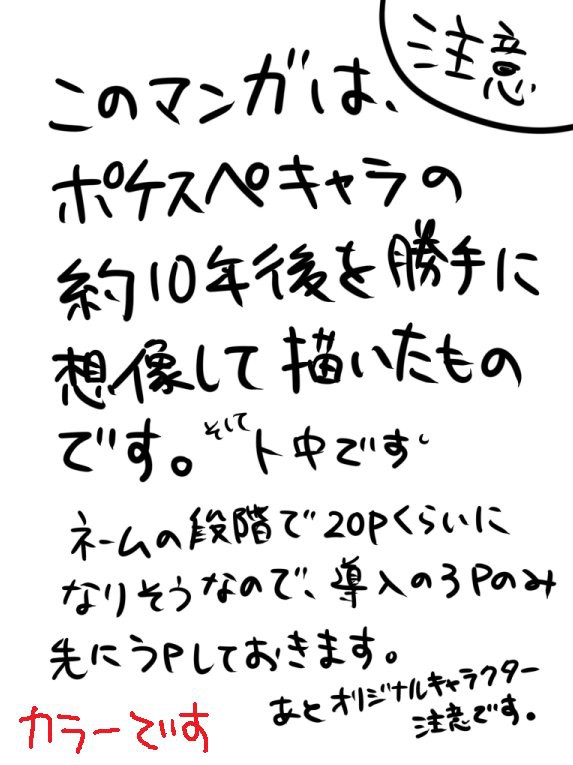 注意
このマンガは、
ポケスペキャラの
約10年後を勝手に
想像して描いたもの
です。そしてト中です
ネームの段階で20Pくらいに
なりそうなので、導入の3Pのみ
先にうPしておきます。
あとオリジナルキャラクター
注意です。
カラーです